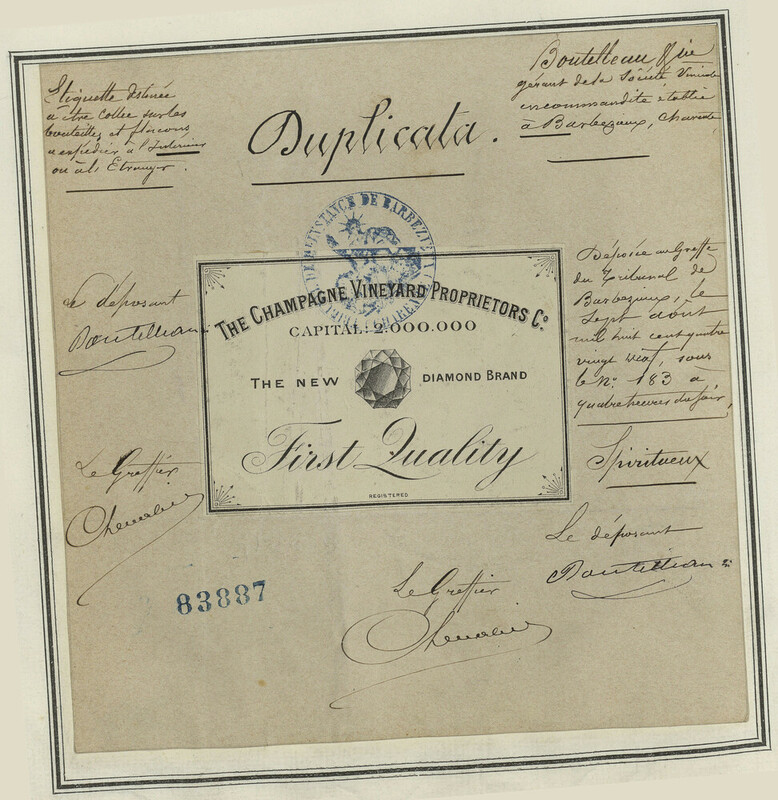 Etiquette destinée
à être collée sur les
bouteilles et flacons
à expédier à l'Intérieur
ou à l'Etranger.
Duplicata.
Boutelleau
gérant de la Société Vinicole
en commandite établie
à Barbezieux, Charente
INSTANCE DE BARBEZIEUX
THE CHAMPAGNE VINEYARD PROPRIETORS Co.
CAPITAL: 2.000.000
THE NEW DIAMOND BRAND
First Quality
REGISTERED
Le déposant
Boutelleau
Le Greffier
Déposée au Greffe
du Tribunal de
Barbezieux, le
Sept août
mil huit cent quatre
vingt , sous
le No. 183 à
quatre heures du soir,
Spiritueux
Le déposant
Boutelleau
Le Greffier
83887